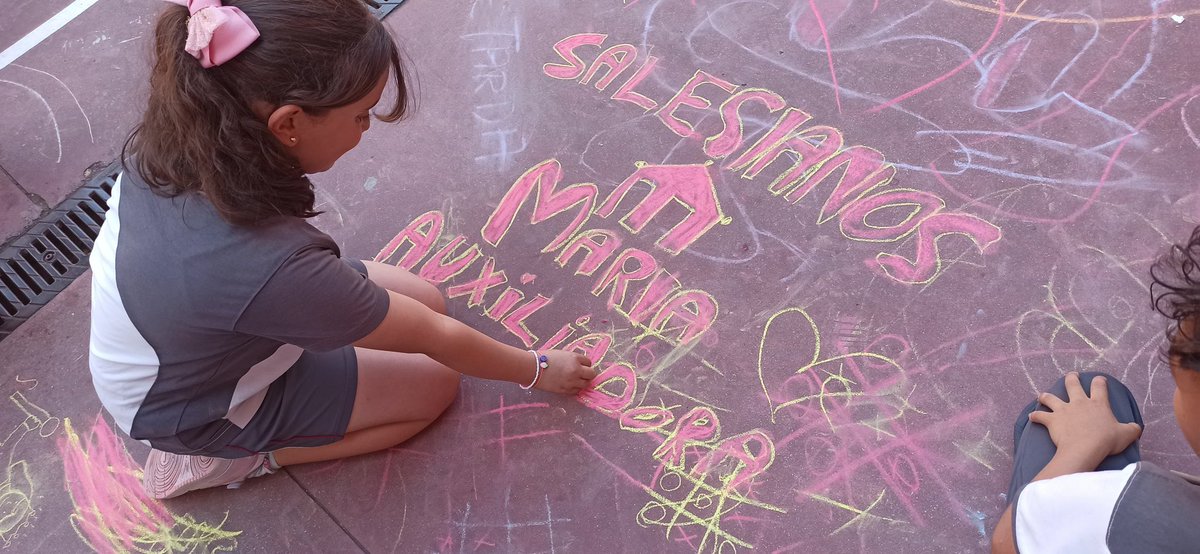 SALESIANOS
MARIA
AUXILIADORA